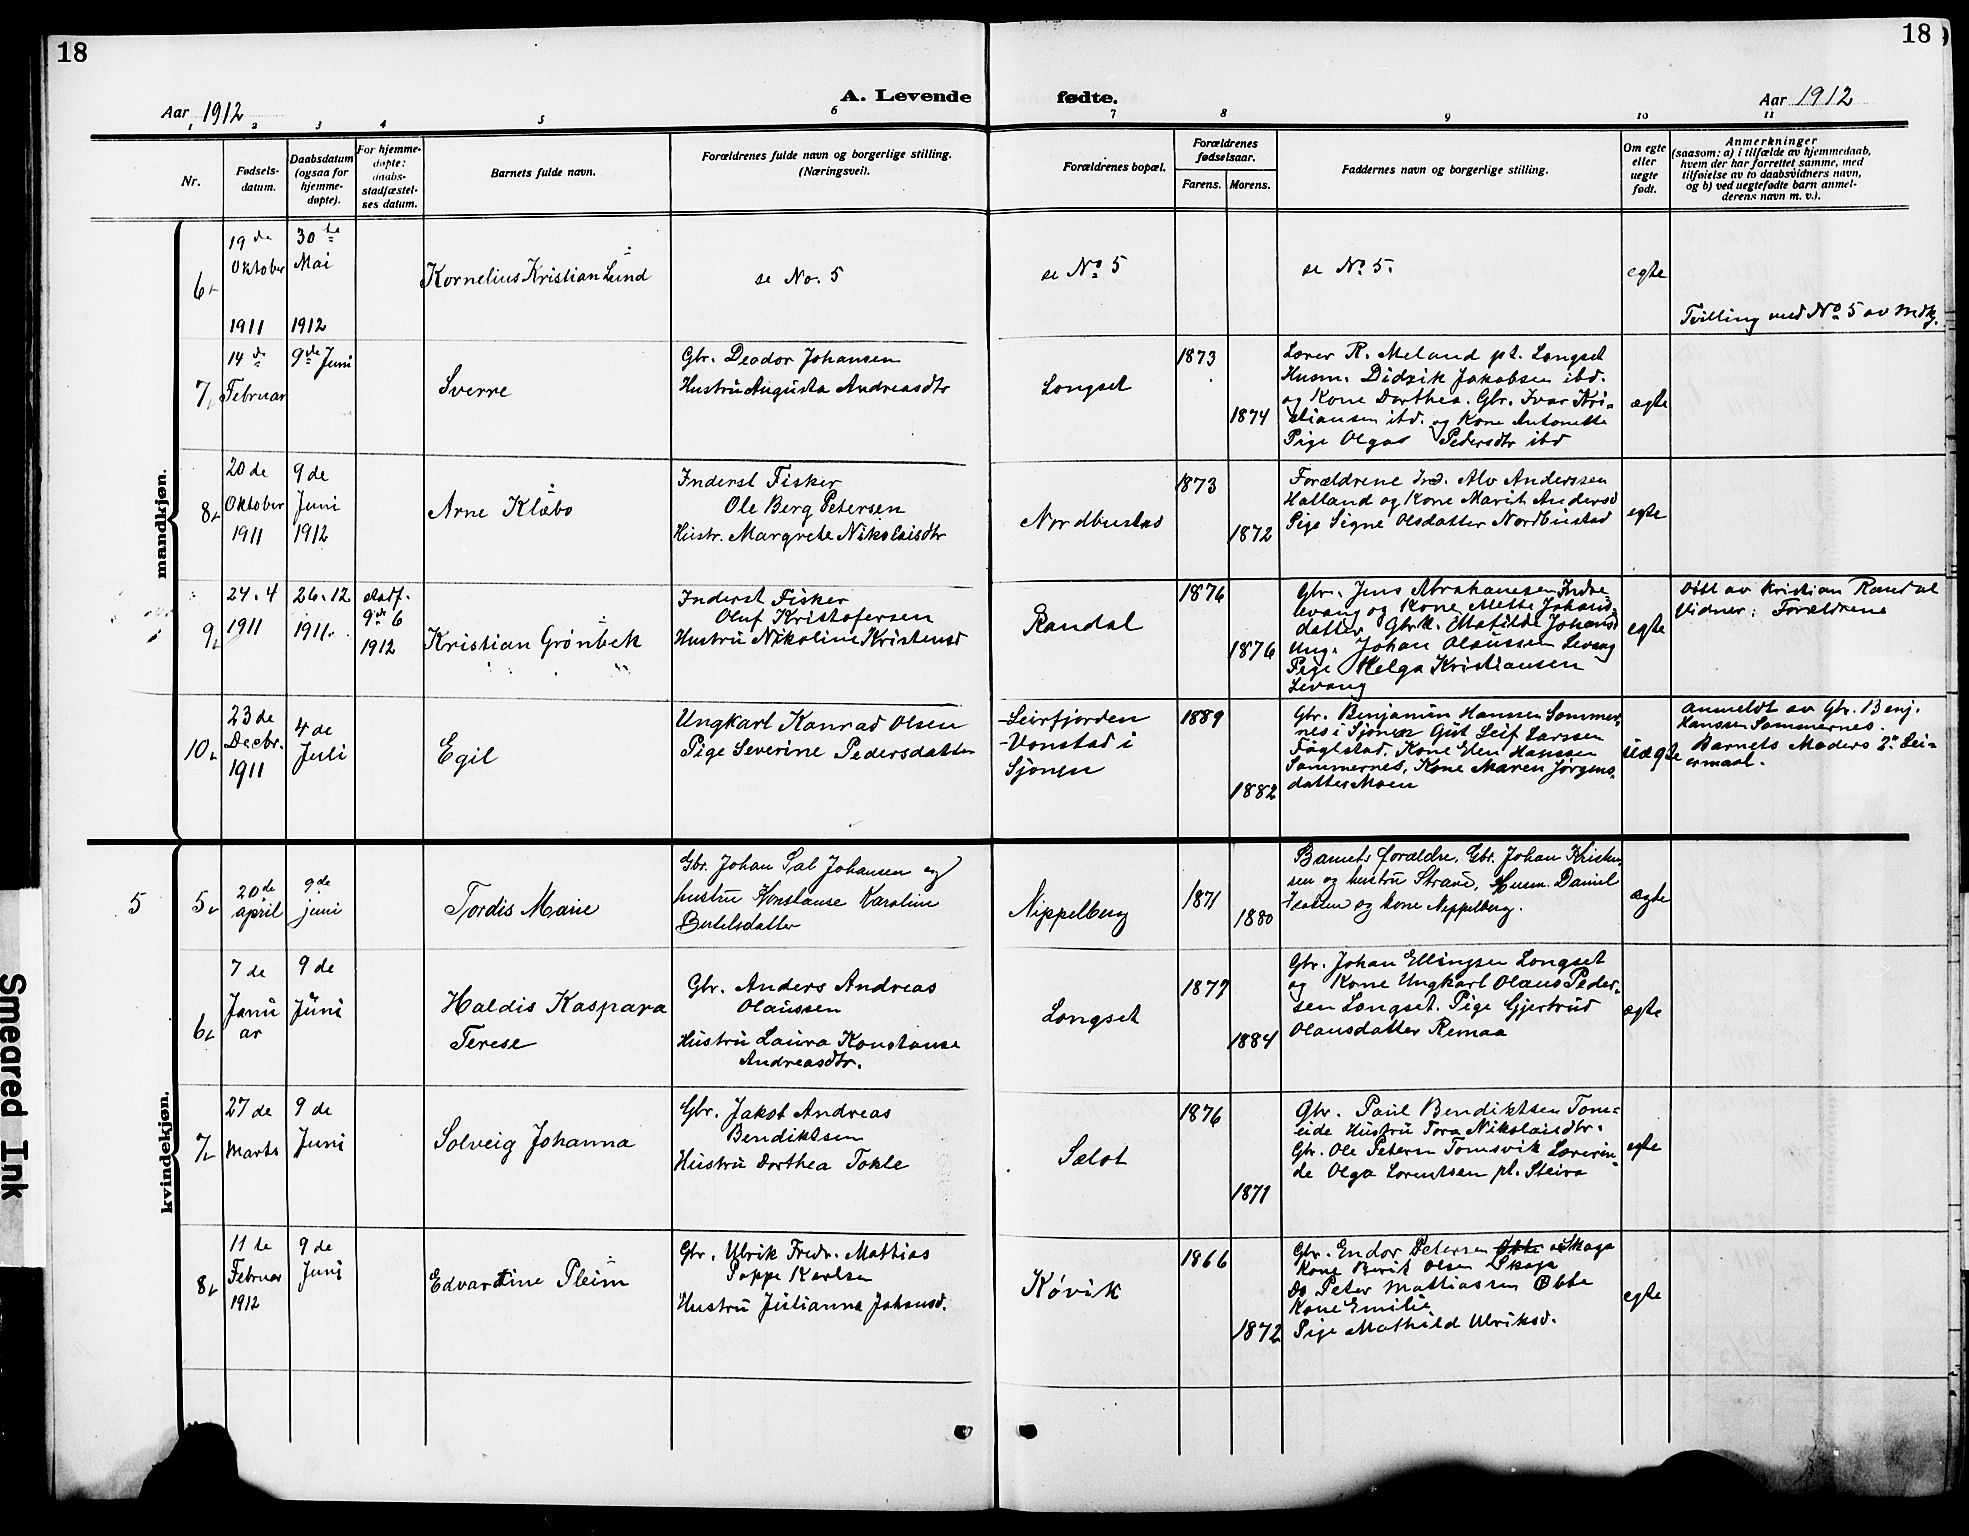 18
18
A. Levende
fødte.
Aar 1912
Aar 1912
1 2 3 4 5 6 7 8 9 10 11
Nr.
Fødsels-
datum.
Daabsdatum
(ogsaa for
hjemme-
døpte).
For hjemme-
døpte:
daabs-
stadfæstel-
ses datum.
Barnets fulde navn.
Forældrenes fulde navn og borgerlige stilling.
(Næringsvei).
Forældrenes bopæl.
Forældrenes
fødselsaar.
Farens. Morens.
Faddernes navn og borgerlige stilling.
Om egte
eller
uegte
født.
Anmerkninger
(saasom: a) i tilfælde av hjemmedaab,
hvem der har forrettet samme, med
tilføielse av to daabsvidners navn,
og b) ved uegtefødte barn anmel-
derens navn m. v.).
mandkjøn.
6
19de
Oktober
1911
30te
Mai
1912
Kornelius Kristian Lund
se No. 5
se No 5
se No 5.
egte
Tvilling med No 5 av Mdkj.
7
14de
Februar
9de Juni
Sverre
Gbr. Deodor Johansen
Hustru Augusta Andreasdtr
Longset
1873
1874
Lærer R. Meland pt. Longset
Husm. Didrik Jakobsen ibd.
og Kone Dorthea. Gbr. Ivar Kri-
stiansen ibd. og Kone Antonette
Pige Olga Pedersdtr ibd
ægte
8
20de
Oktober
1911
9de
Juni
1912
Arne Klæbo
Inderst Fisker
Ole Berg Petersen
Hustr. Margrete Nikolaisdtr
Nordbustad
1873
1872
Forældrene Ind. Alv Anderssen
Halland og Kone Marit Andersd
Pige Signe Olsdatter Nordbustad
egte
9
24.4
1911
26.12
1911.
stadf.
9de 6
1912
Kristian Grønbek
Inderst Fisker
Oluf Kristofersen
Hustru Nikoline Kristensd
Randal
1876
1876
Gbr. Jens Abrahamsen Indre
levang og Kone Mette Johans
datter Gbrk. Matilde Johansd
Ung. Johan Olaussen Levang
Pige Helga Kristiansen
Levang
egte
døbt av Kristian Randal
Vidner: Forældrene
10
23de
Decbr.
1911
4de
Juli
Egil
Ungkarl Konrad Olsen
Pige Severine Pedersdatter
-Leirfjorden
-Vonstad i
Sjonen
1889
1882
Gbr. Benjamin Hanssen Sommer-
nes i Sjonen Gbr Leif Larssen
Fuglstad. Kone Elen Hanssen
Sommernes, Kone Maren Jørgens-
datter Moen
uægte
anmeldt av Gbr. Benj.
Hanssen Sommernes.
Barnets Moders 2n Lei-
ermaal.
kvindekjøn.
5
5
20de
april
9de
juni
Tordis Marie
Gbr. Johan Sal Johansen og
hustru Konstanse Karoline
Bertelsdatter
Nippelberg
1871
1880
Barnets forældre, Gbr. Johan Kristen
sen og hustru Strand, Husm. Daniel
Isaksen og kone Nippelberg.
ægte
6
7de
Janu
ar
9de
Juni
Haldis Kaspara
Terese
Gbr. Anders Andreas
Olaussen
Hustru Laura Konstanse
Andreasdtr.
Longset
1877
1884
Gbr. Johan Ellingsen Longset
og Kone Ungkarl Olaus Peder-
sen Longset. Pige Gjertrud
Olausdatter Remaa
ægte
7
27de
Marts
9de
Juni
Solveig Johanna
Gbr. Jakob Andreas
Bendiktsen
Hustru Dorthea Tokle
Sælot
1876
1871
Gbr. Paul Bendiktsen Tom-
eide Hustru Tora Nikolaisdtr.
Gbr. Ole Petersen Tomsvik Lærerin-
de Olga Lorentsen pt. Steiro
egte
8
11te
Februar
1912
9de
Juni
Edvardtine Pleim
Gbr. Ulrik Fredr. Mattias
Poppe Karlsen
Hustru Julianna Johansd.
Køvik
1866
1872
Gbr. Endor Petersen Skaga
Kone Berit Olsen Skaga
Do Peter Mattiassen Ebbe
Kone Emilie
Pige Mathild Ulriksd.
egte
Smeared Ink